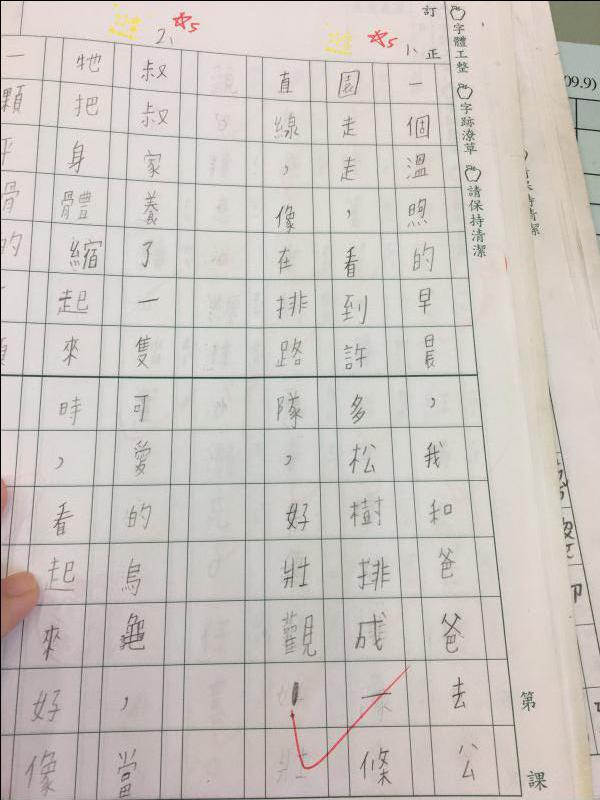 字體工整 字跡潦草 請保持清潔
第 課
訂正
1、
一個溫照的早晨，我和爸爸去公
園走走，看到許多松樹排成一條
直線，像在排路隊，好壯觀！
2、
叔叔家養了一隻可愛的烏龜，當
牠把身體縮起來時，看起來好像
一顆
09.9)
保持清潔